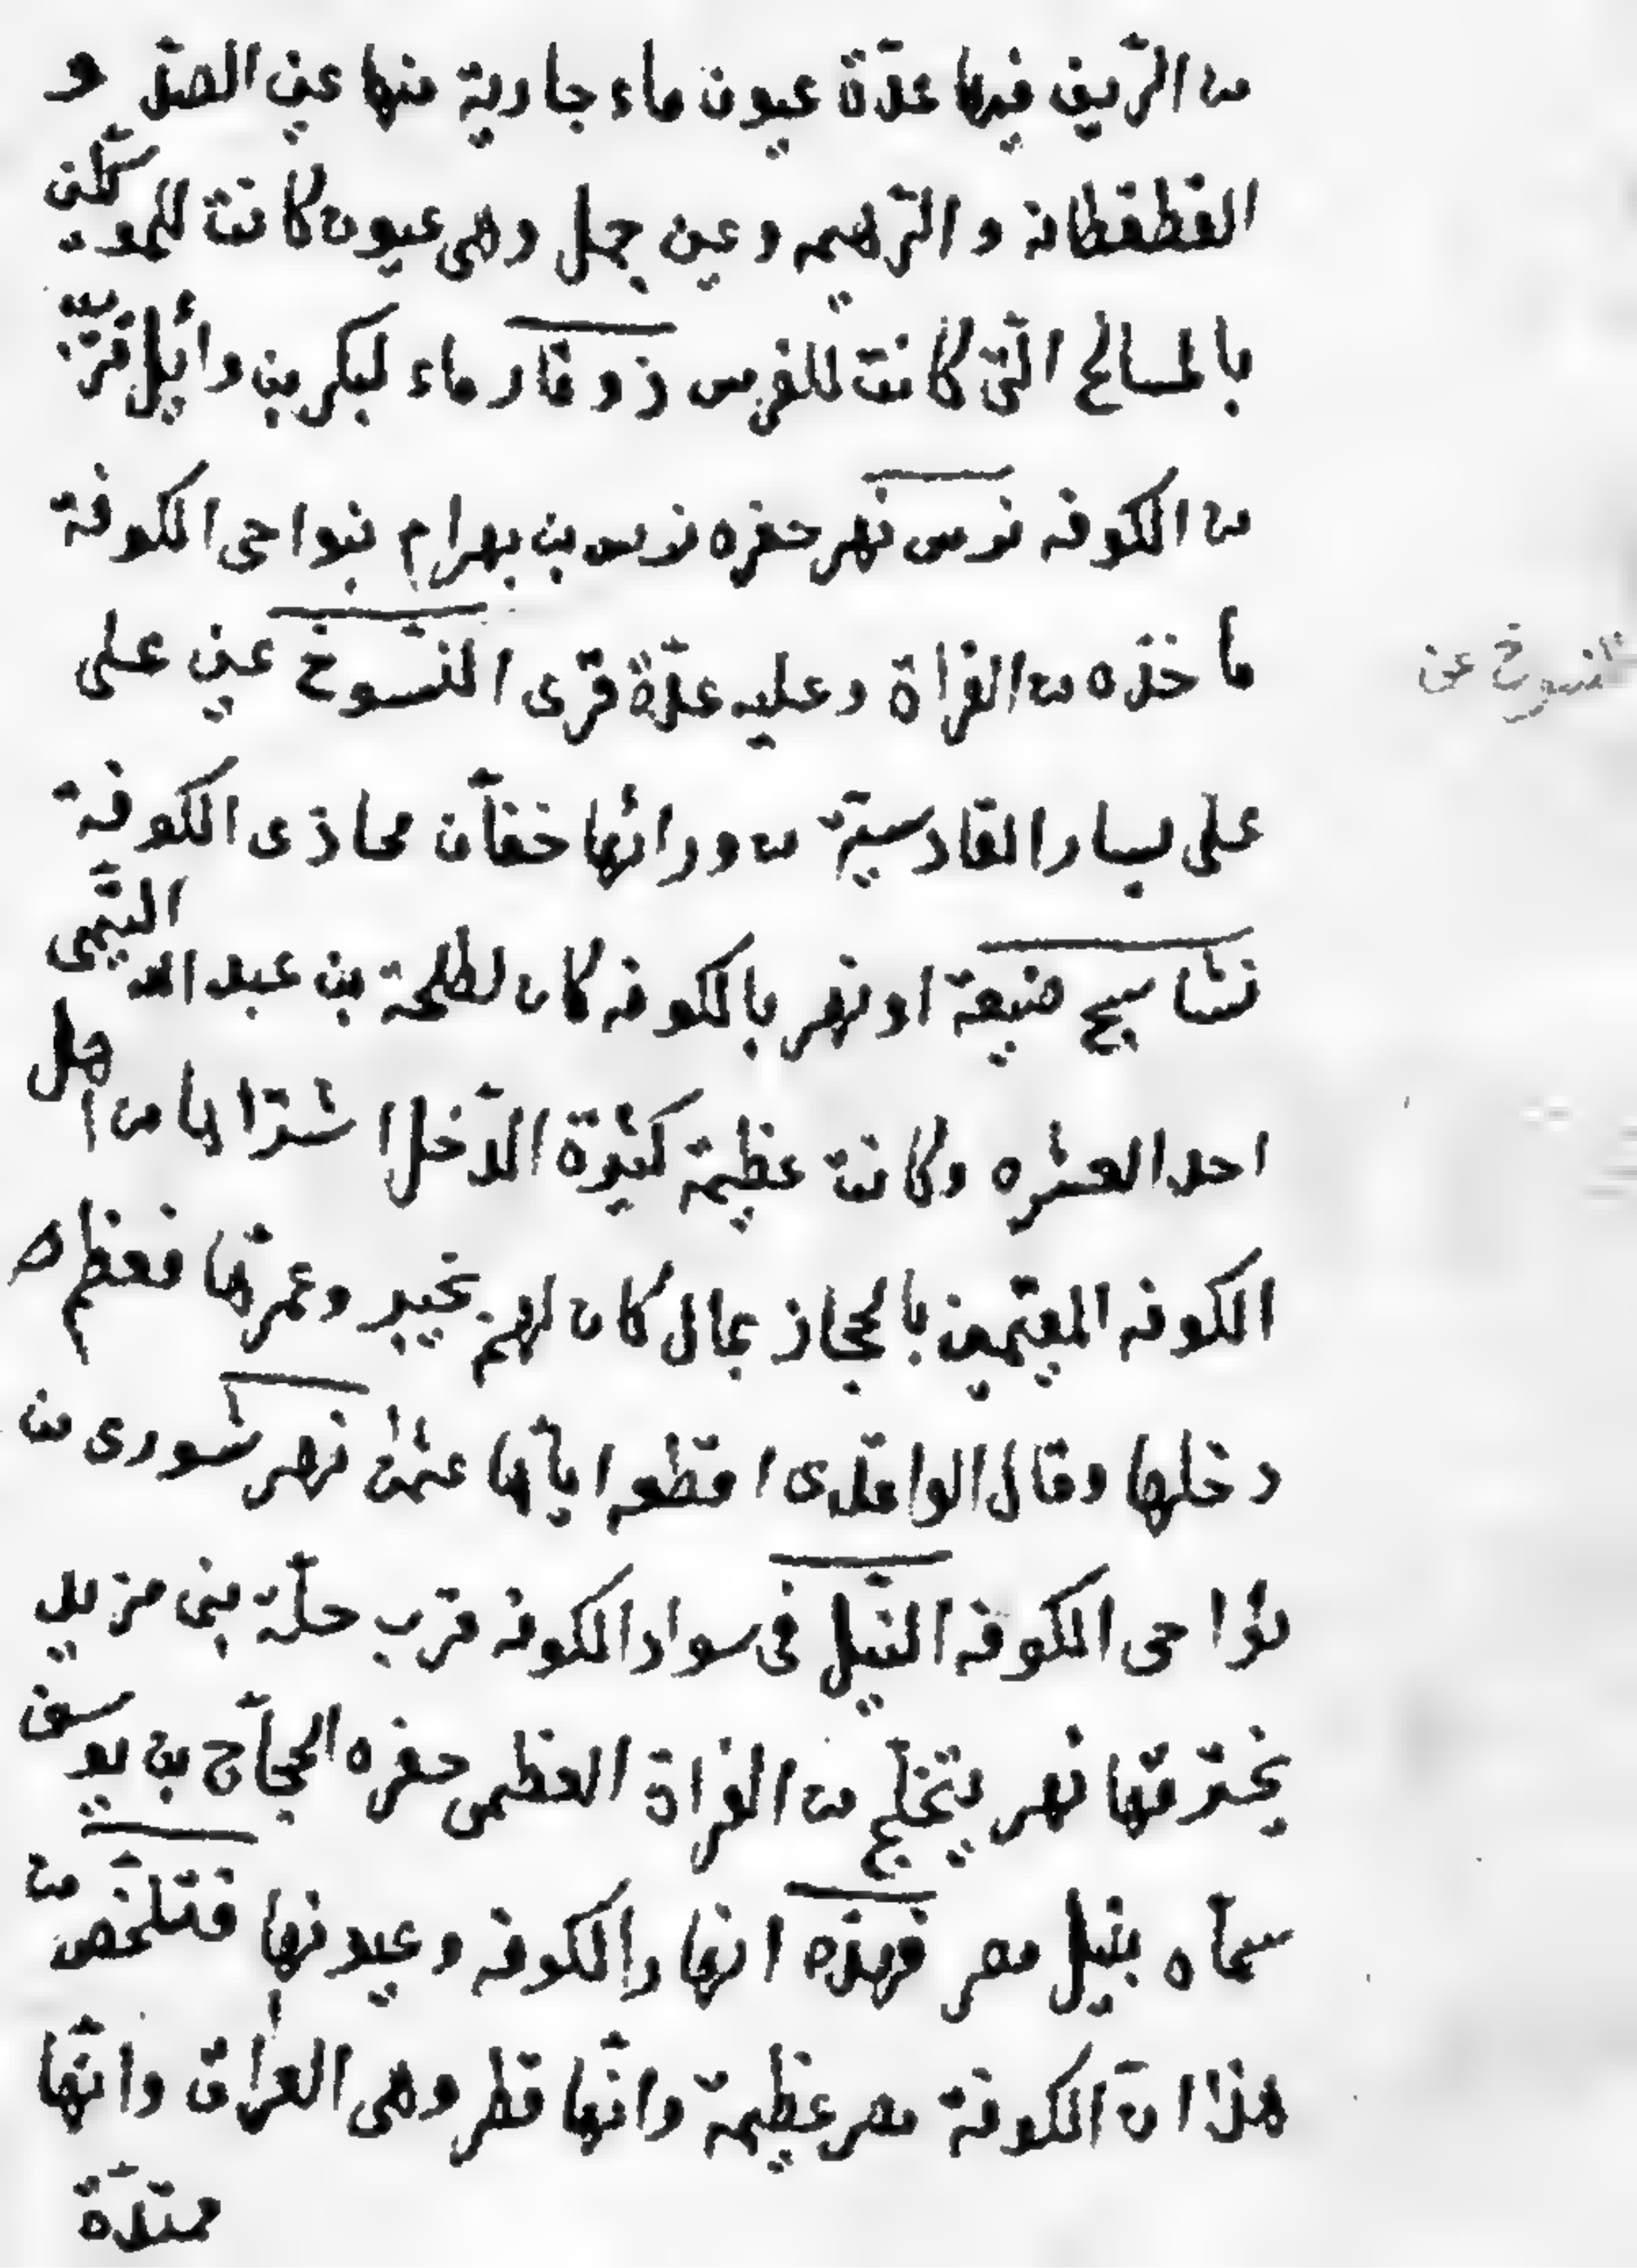 من الرّيف فيها عدّة عيون ماء جارية منها عين الصدّ و
القطقطانة و الرّهيمه و عين جمل وهى عيون كانت للموكلين
بالمسالح الّتى كانت للفرس ذو قار ماء لبكر بن وائيل قريب
من الكوفه نرس نهر حفره نرس بن بهرام بنواحى الكوفة
ماخذه من الفراة وعليه عدّة قرى النسّوخ عين على
النسوخ عين
على يسار القادسيّة من ورائها خفّان محاذى الكوفة
نشاسيج ضيعة او نهر بالكوفه كان لطلحة بن عبد الله التّيمى
احد العشره وكانت عظيمة كثيرة الدّخل اشتراها من اهل
الكوفه المقيمين بالحجاز بمال كان لهم بخيبر وعمرّها فعظم
دخلها وقال الواقدى اقطعه ايّاها عثمن نهر شورى من
نواحى الكوفه النّيل فى سواد الكوفه قرب حلّة بنى مزيد
يخترقها نهر يتخلّج من الفراة العظمى حفره الحجّاج بن يوسف
سمّاه بنيل مصر فهذه انهار الكوفه وعيونها فتلخّص من
هذا انّ الكوفة مصر عظيمة وانّها قطر وهى العراق وانّها
ممتدّة